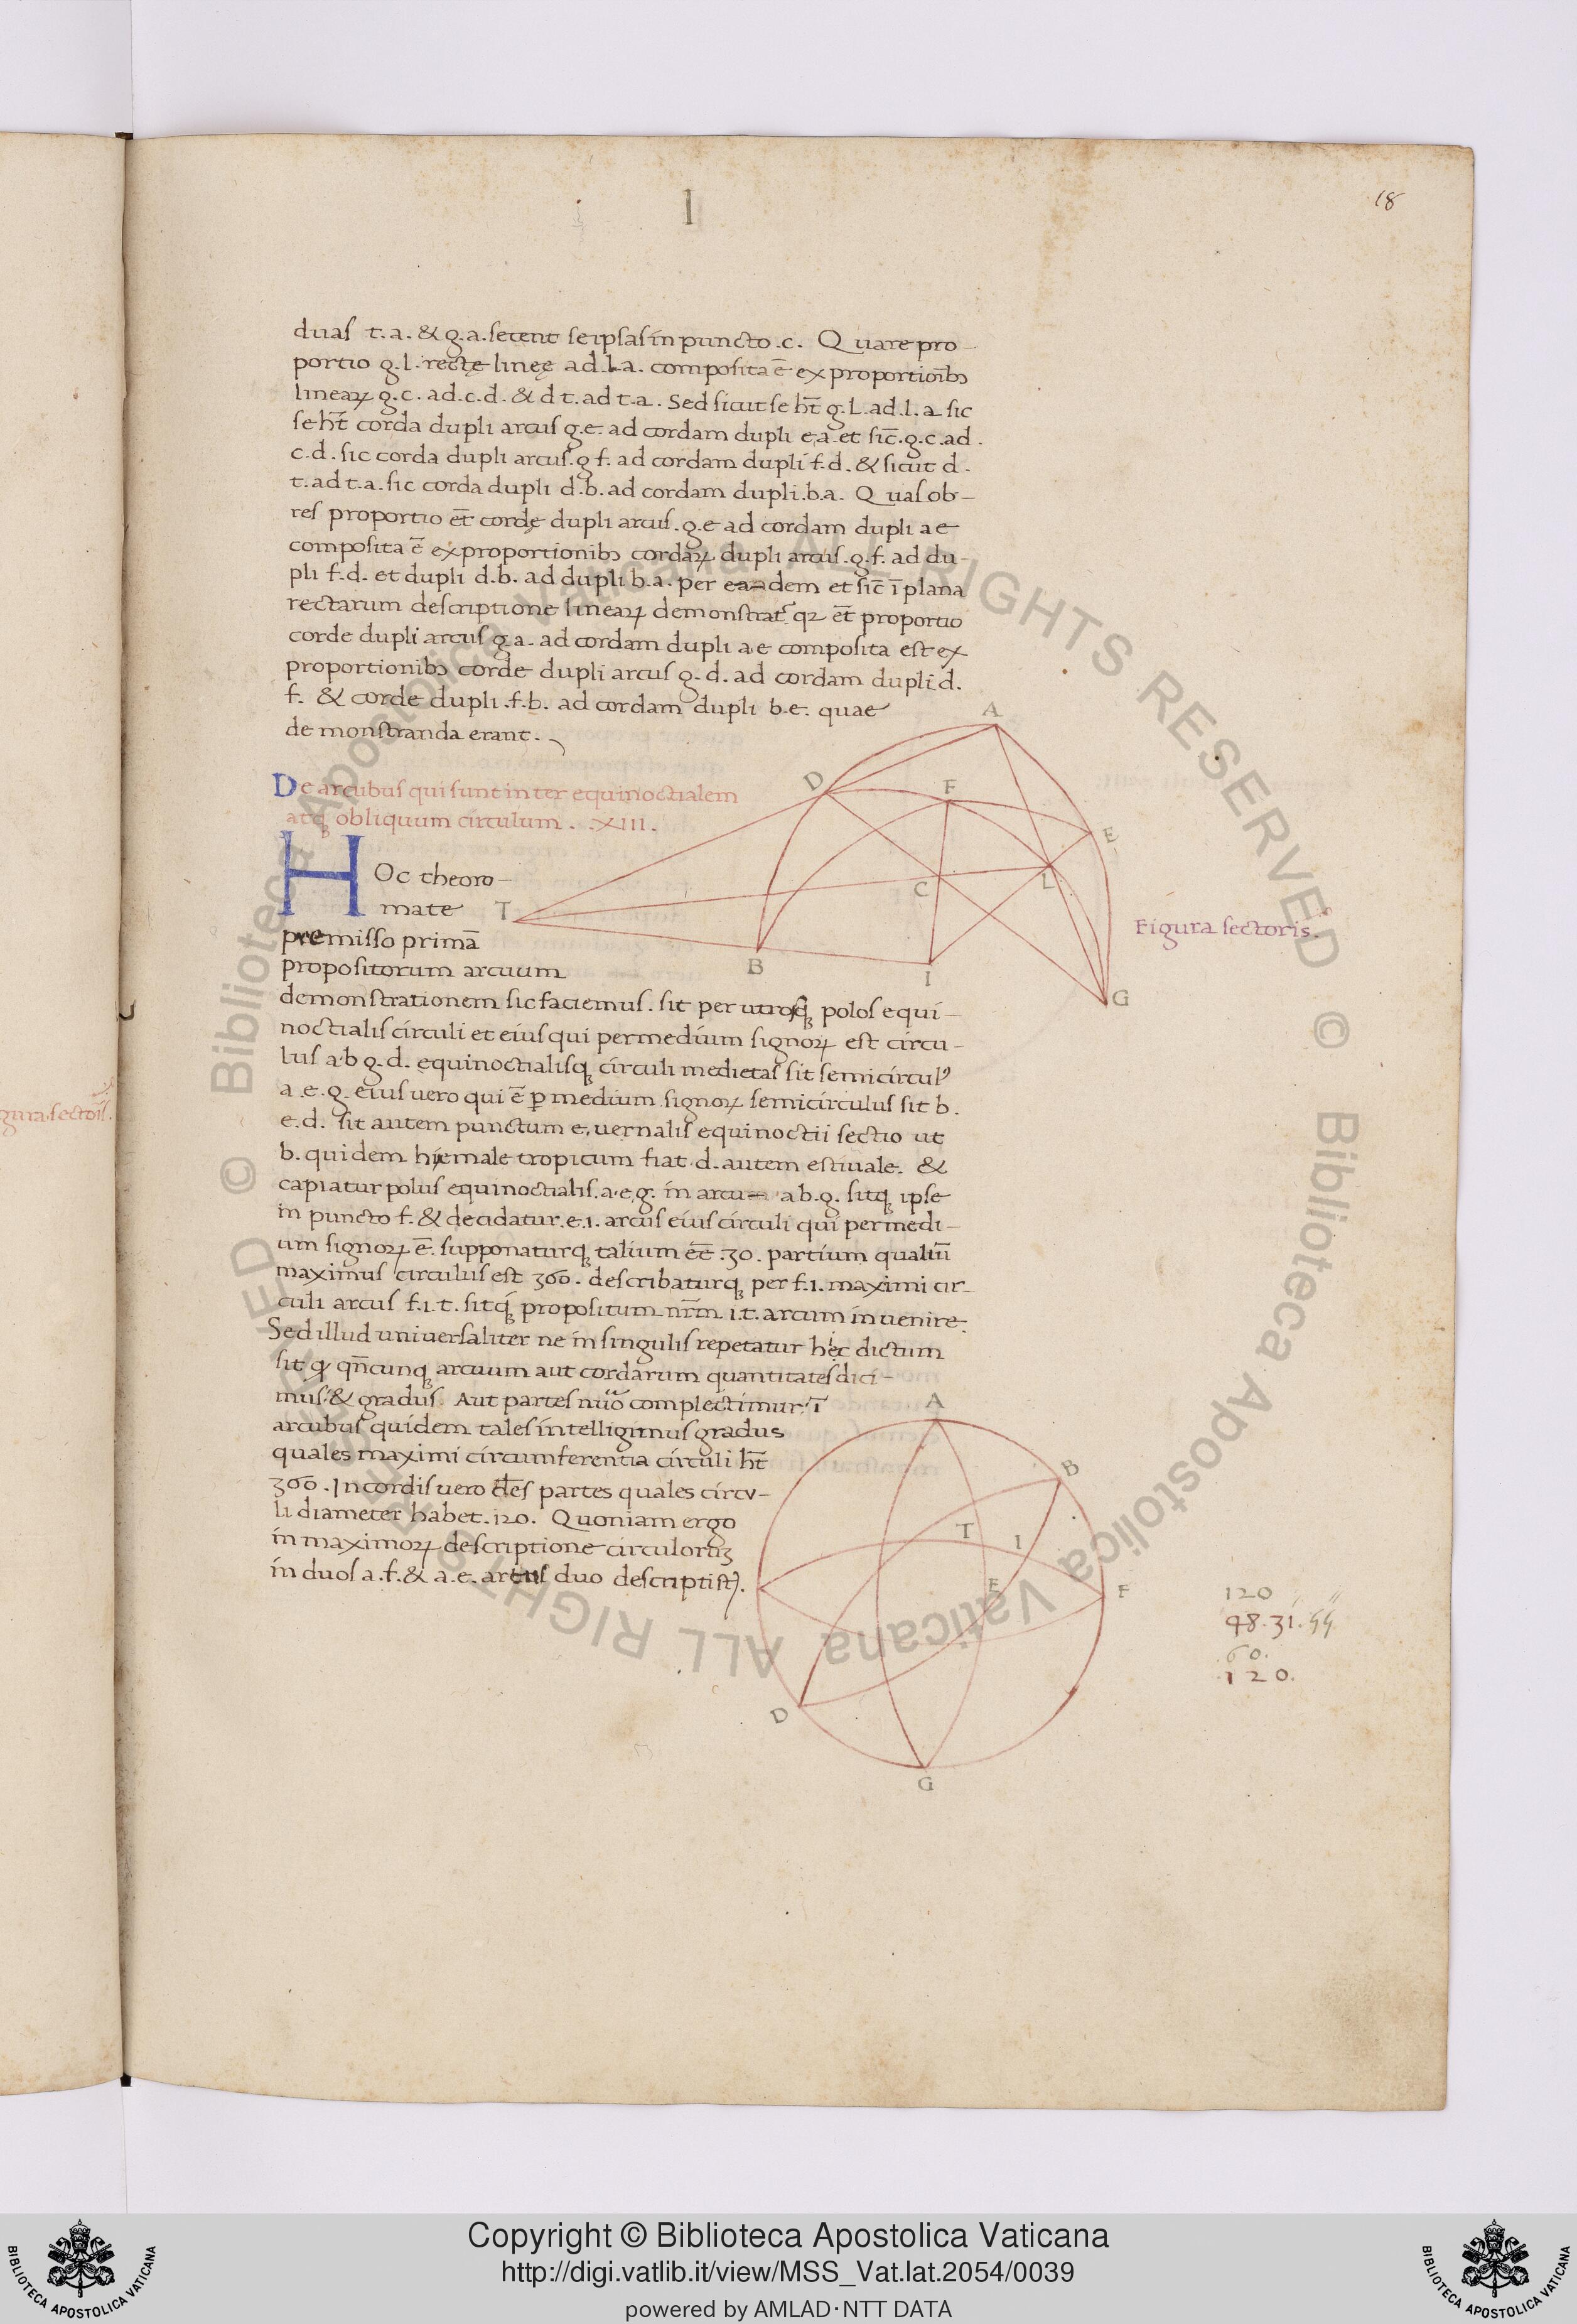 I
18
duas t.a. & g.a. secent se ipsas in puncto .c. Quare pro-
portio g.l. rectę linęę ad .l.a. composita ē ex proportionibꝫ
linearꝝ g.c. ad .c.d. & d t. ad t.a. Sed sicut se ht̄ g.l. ad .l.a sic
se ht̄ corda dupli arcus g.e. ad cordam dupli e.a. et sic̄ .g.c. ad.
c.d. sic corda dupli arcus .g f. ad cordam dupli f.d. & sicut d.
t. ad t.a. sic corda dupli d.b. ad cordam dupli .b.a. Quas ob-
res proportio et̄ cordę dupli arcus .g.e ad cordam dupli a e
composita ē ex proportionibꝫ cordarꝝ dupli arcus .g.f. ad du-
pli f.d. et dupli d.b. ad dupli b.a. per eandem et sic̄ ī plana
rectarum descriptione linearꝝ demonstrat᷑. qꝫ et̄ proportio
corde dupli arcus g.a. ad cordam dupli a.e composita est ex
proportionibꝫ corde dupli arcus g.d. ad cordam dupli .d.
f. & corde dupli .f.b. ad cordam dupli b.e. quae
demonstranda erant.
De arcubus qui sunt inter equinoctialem
atqꝫ obliquum circulum . .XIII.
HOc theoro-
mate
premisso primā
propositorum arcuum
demonstrationem sic faciemus. sit per utrosqꝫ polos equi-
noctialis circuli et eius qui per medium signorꝝ est circu-
lus a.b g.d. equinoctialisqꝫ circuli medietas sit semicirculꝰ
a.e.g. eius uero qui ē ꝑ medium signorꝝ semicirculus sit b.
e.d. sit autem punctum e. uernalis equinoctii sectio ut
b. quidem hiemale tropicum fiat .d. autem estiuale. &
capiatur polus equinoctialis .a.e.g. in arcu a b.g. sitqꝫ ipse
in puncto f. & decidatur .e.i. arcus eius circuli qui per medi-
um signorꝝ ē. supponaturqꝫ talium eē .30. partium qualiū
maximus circulus est 360. describaturqꝫ per f.i. maximi cir-
culi arcus f.i.t. sitqꝫ propositum nr̄m i.t. arcum inuenire.
Sed illud uniuersaliter ne in singulis repetatur hic dictum
sit ꝙ qn̄cunqꝫ arcuum aut cordarum quantitates dici-
mus & gradus. Aut partes complectimur. ī
arcubus quidem tales intelligimus gradus
quales maximi circumferentia circuli ht̄
360. In cordis uero partes quales circu-
li diameter habet .120. Quoniam ergo
in maximorꝝ descriptione circulorū
in duos a.f. & a.e. arcus duo descripti st̄.
A
D
F
E
C
L
T
B
I
G
Figura sectoris.
A
B
T
I
E
F
D
G
120
48.31.55
.60.
.120.
© Biblioteca Apostolica Vaticana ALL RIGHTS RESERVED
© Biblioteca Apostolica Vaticana ALL RIGHTS RESERVED
Copyright © Biblioteca Apostolica Vaticana
http://digi.vatlib.it/view/MSS_Vat.lat.2054/0039
powered by AMLAD·NTT DATA
BIBLIOTECA APOSTOLICA VATICANA
BIBLIOTECA APOSTOLICA VATICANA